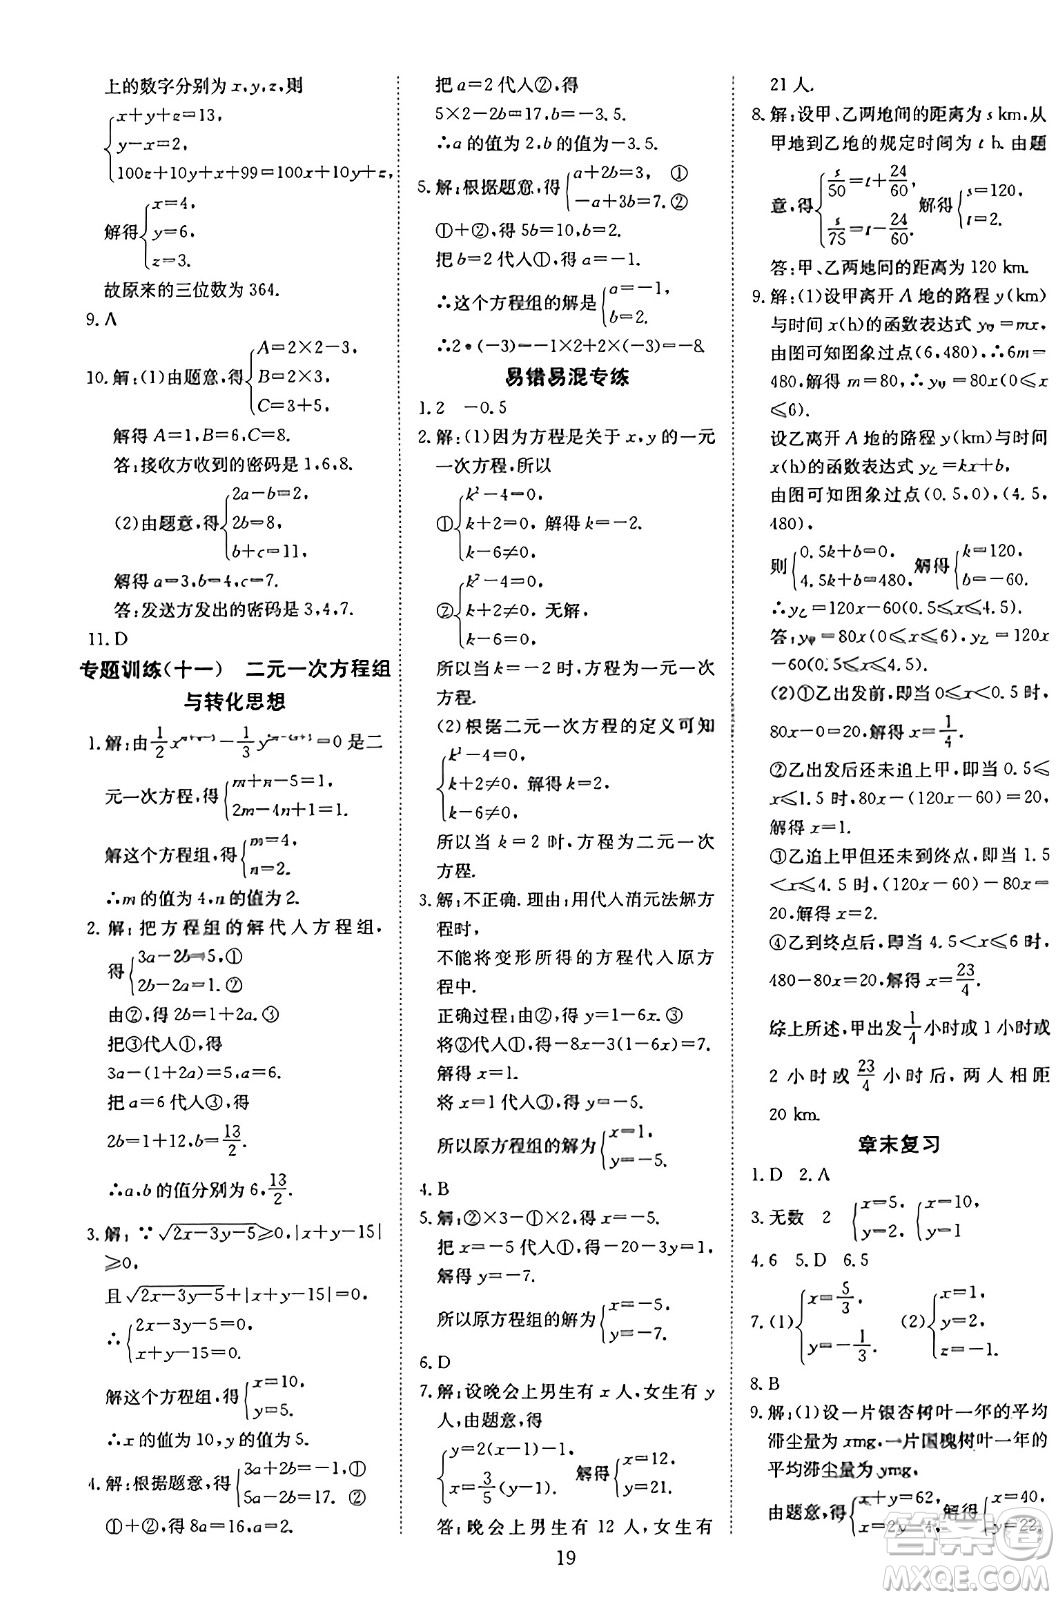 上的数字分别为 x,y,z,则
x+y+z=13,
y-x=2,
100z+10y+x+99=100x+10y+z,
x=4,
解得 y=6,
z=3.
故原来的三位数为 364.
9. A
A=2×2-3,
10. 解:(1)由题意,得 B=2×3,
C=3+5.
解得 A=1,B=6,C=8.
答:接收方收到的密码是 1,6,8.
2a-b=2,
(2)由题意,得 2b=8,
b+c=11,
解得 a=3,b=4,c=7.
答:发送方发出的密码是 3,4,7.
11. D
专题训练(十一) 二元一次方程组
与转化思想
1. 解:由 1/2 x - 1/3 y =0 是二
元一次方程,得 m+n-5=1,
2m-4n+1=1,
解这个方程组,得 m=4,
n=2.
∴m 的值为 4,n 的值为 2.
2. 解:把方程组的解代人方程组,
得 3a-2b=5,①
2b-2a=1. ②
由②,得 2b=1+2a.③
把③代人①,得
3a-(1+2a)=5,解得 a=6.
把 a=6 代人③,得
2b=1+12,b=13/2.
∴a,b 的值分别为 6,13/2.
3. 解:∵√(2x-3y-5)≥0,|x+y-15|
≥0,
且 √(2x-3y-5)+|x+y-15|=0,
∴ 2x-3y-5=0,
x+y-15=0.
解这个方程组,得 x=10,
y=5.
∴x 的值为 10,y 的值为 5.
4. 解:根据题意,得 3a+2b=-1, ①
5a-2b=17. ②
①+②,得 8a=16,a=2.
把 a=2 代人②,得
5×2-2b=17,b=-3.5.
∴a 的值为 2,b 的值为-3.5.
5. 解:根据题意,得 a+2b=3, ①
-a+3b=7.②
①+②,得 5b=10,b=2.
把 b=2 代人①,得 a=-1.
∴这个方程组的解是 a=-1,
b=2.
∴2*(-3)=-1×2+2×(-3)=-8.
易错易混专练
1. 2 -0.5
2. 解:(1)因为方程是关于 x,y 的一元
一次方程,所以
k²-4=0,
① k+2=0,解得 k=-2.
k-6≠0,
k²-4=0,
② k+2≠0,无解,
k-6=0,
所以当 k=-2 时,方程为一元一次
方程.
(2)根据二元一次方程的定义可知
k²-4=0,
k+2≠0,解得 k=2.
k-6≠0,
所以当 k=2 时,方程为二元一次
方程.
3. 解:不正确.理由:用代人消元法解方
程时,
不能将变形所得的方程代人原方
程中.
正确过程:由②,得 y=1-6x.③
将③代人①,得-8x-3(1-6x)=7.
解得 x=1.
将 x=1 代人③,得 y=-5.
所以原方程组的解为 x=1,
y=-5.
4. B
5. 解:②×3-①×2,得 x=-5.
把 x=-5 代人①,得-20-3y=1.
解得 y=-7.
所以原方程组的解为 x=-5,
y=-7.
6. D
7. 解:设晚会上男生有 x 人,女生有 y
人,由题意,得
y=2(x-1)-1,
x=3/5(y-1). 解得 x=12,
y=21.
答:晚会上男生有 12 人,女生有
21 人.
8. 解:设甲、乙两地间的距离为 s km,从
甲地到乙地的规定时间为 t h.由题
意,得 s/50=t+24/60, 解得 s=120,
s/75=t-24/60. t=2.
答:甲、乙两地间的距离为 120 km.
9. 解:(1)设甲离开 A 地的路程 y(km)
与时间 x(h)的函数表达式 y甲=mx,
由图可知图象过点(6,480),∴6m=
480,解得 m=80,∴y甲=80x(0≤x
≤6).
设乙离开 A 地的路程 y(km)与时间
x(h)的函数表达式 y乙=kx+b,
由图可知图象过点(0.5,0),(4.5,
480),
则 0.5k+b=0, 解得 k=120,
4.5k+b=480, b=-60.
∴y乙=120x-60(0.5≤x≤4.5).
答:y甲=80x(0≤x≤6),y乙=120x
-60(0.5≤x≤4.5).
(2)①乙出发前,即 0≤x<0.5 时,
80x-0=20,解得 x=1/4.
②乙出发后还未追上甲,即 0.5≤
x≤1.5 时,80x-(120x-60)=20,
解得 x=1.
③乙追上甲但还未到终点,即 1.5
<x≤4.5 时,(120x-60)-80x=
20.解得 x=2.
④乙到终点后,即当 4.5<x≤6 时,
480-80x=20,解得 x=23/4.
综上所述,甲出发 1/4 小时或 1 小时或
2 小时或 23/4 小时后,两人相距
20 km.
章末复习
1. D 2. A
3. 无数 2 x=5, x=10,
y=2, y=1
4. 6 5. D 6. 5
7. (1) x=5/3, (2) x=1,
y=-1/3. y=2,
z=-1.
8. B
9. 解:(1)设一片银杏树叶一年的平均
滞尘量为 xmg,一片国槐树叶一年的
平均滞尘量为 ymg,
由题意,得 x+y=62, 解得 x=40,
x=2y-4, y=22.
19
答案
MXQE.COM